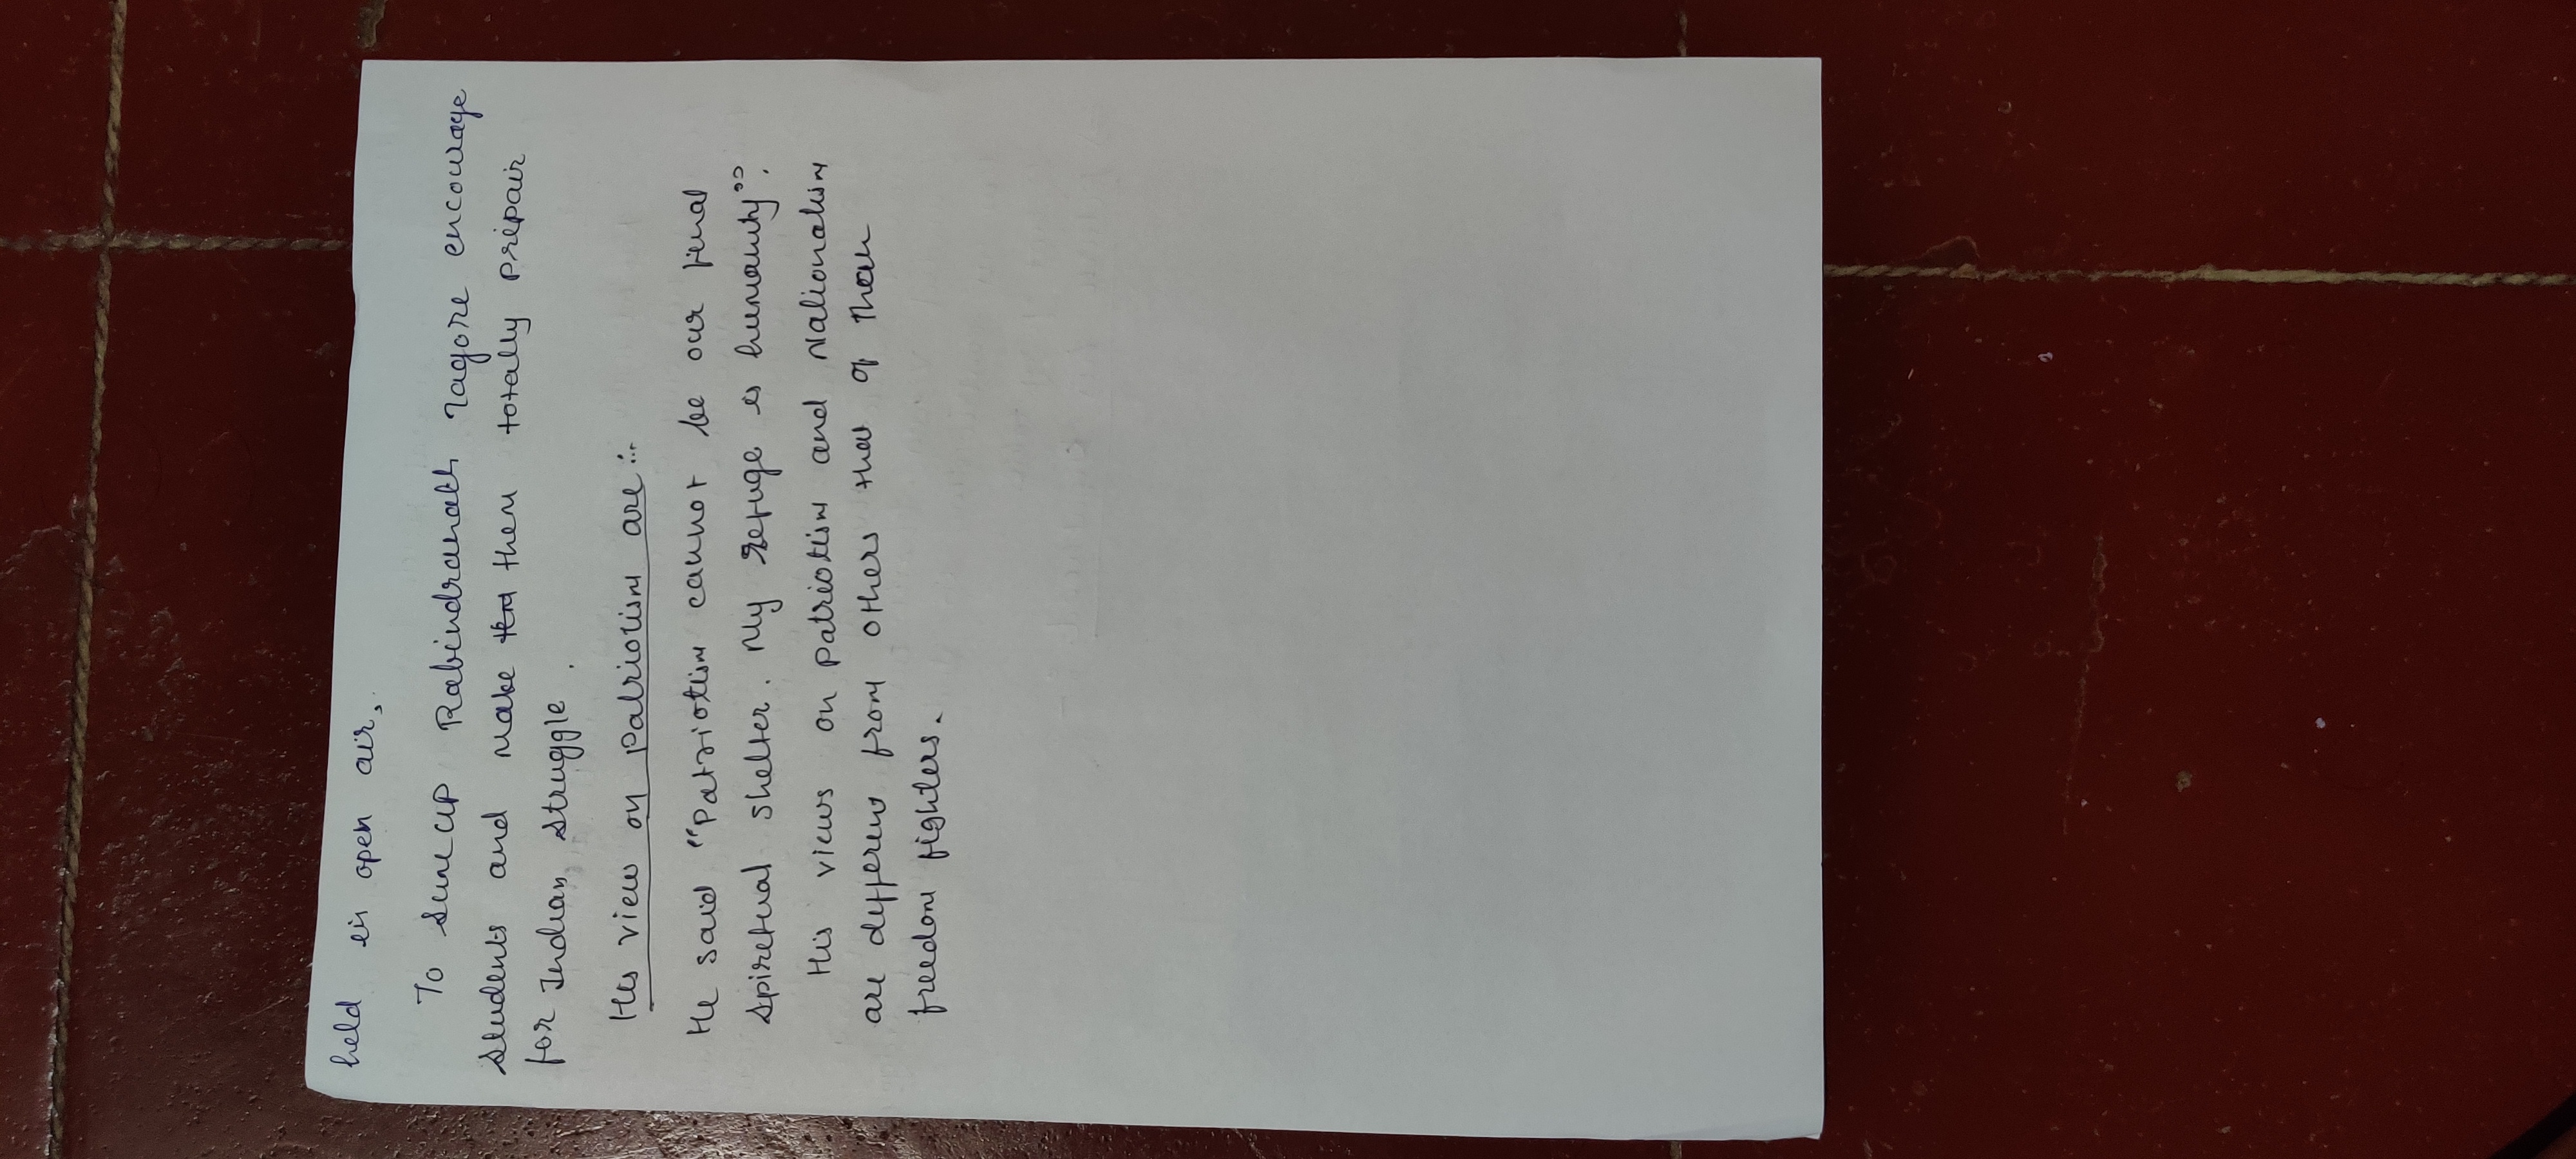 held in open air,
To sum up Rabindranath Tagore encourage
students and make them totally prepair
for Indian struggle.
His view on patriotism are:-
He said "Patriotism cannot be our final
spiretual shelter. My refuge is humanity".
His views on patriotism and Nationalism
are different from others that of then
freedom fighters.